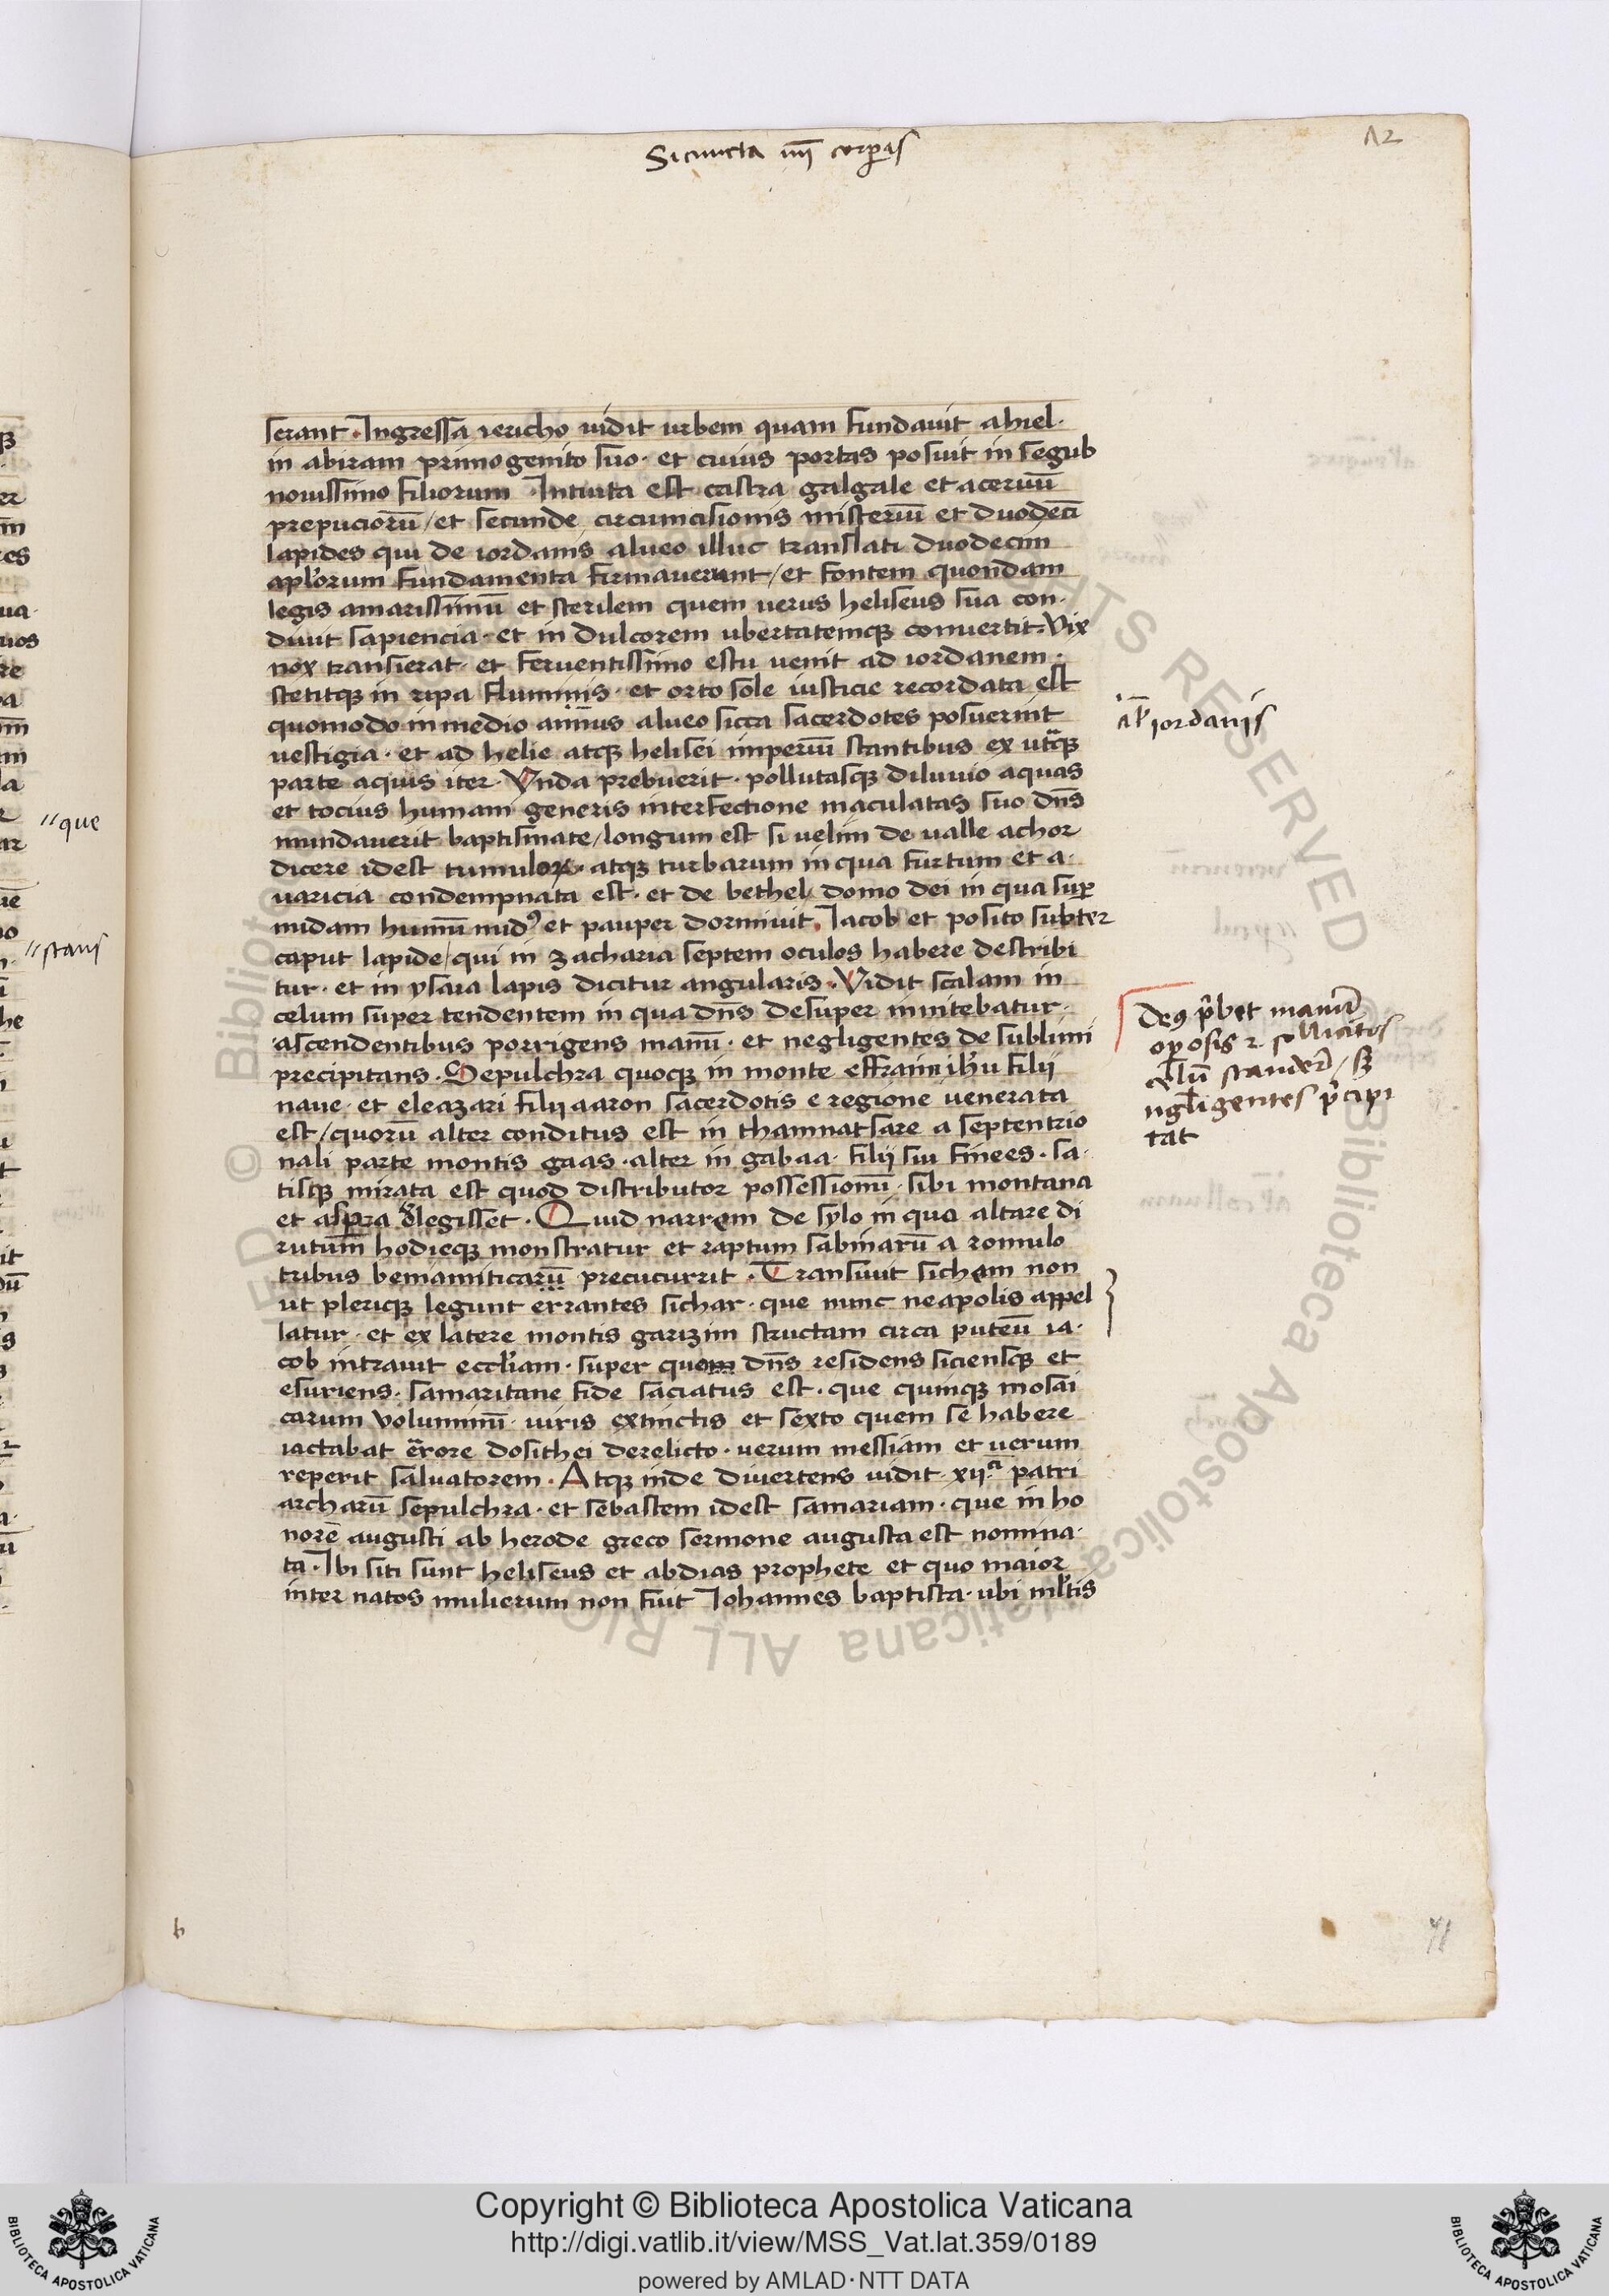 12
serant · Ingressa iericho uidit urbem quam fundauit ahiel ·
in abiram primogenito suo · et cuius portas posuit in segub
nouissimo filiorum · Intuita est castra galgale et aceruū
prepuciorū / et secunde circumcisionis misteriū et duodecī
lapides qui de iordanis alueo illuc translati duodecim
apl'orum fundamenta firmauerunt / et fontem quondam
legis amarissimū et sterilem quem uerus heliseus sua con-
diuit sapiencia · et in dulcorem ubertatemqȝ conuertit · Vix
nox transierat · et feruentissimo estu uenit ad iordanem ·
stetitqȝ in ripa fluminis · et orto sole iusticie recordata est
quomodo in medio amnis alueo sicca sacerdotes posuerint
uestigia · et ad helie atqȝ helisei imperiū stantibus ex utᵃqȝ
parte aquis iter · Vnda prebuerit · pollutasqȝ diluuio aquas
et tocius humani generis interfectione maculatas suo dn̄s
mundauerit baptismate / longum est si uelim de ualle achor
dicere idest tumuloꝝ · atqȝ turbarum in qua furtum et a-
uaricia condempnata est · et de bethel domo dei in qua suꝑ
nudam humū nudꝰ et pauper dormiuit · Iacob et posito subter
caput lapide / qui in zacharia septem oculos habere describi
tur · et in ysaia lapis dicitur angularis · Vidit scalam in
celum super tendentem in qua dn̄s desuper innitebatur ·
ascendentibus porrigens manū · et negligentes de sublimi
precipitans · Sepulchra quoqȝ in monte effraim ih'u filii
naue · et eleazari filii aaron sacerdotis e regione uenerata
est / quorū alter conditus est in thamnatsare a septentrio
nali parte montis gaas · alter in gabaa · filii sui finees · sa-
tisqȝ mirata est quod distributor possessionū · sibi montana
et asꝑa delegisset · Quid narrem de sylo in quo altare di
rutum hodieqȝ monstratur et raptum sabinarū a romulo
tribus beniamiticarū precucurrit · Transiuit sichem non
ut pleriqȝ legunt errantes sichar · que nunc neapolis appel
latur · et ex latere montis garizim structam circa puteū ia-
cob intrauit eccl'iam · super quem dn̄s residens siciensqȝ et
esuriens · samaritane fide saciatus est · que quinqȝ mosai
carum voluminū · uiris extinctis et sexto quem se habere
iactabat errore dosithei derelicto · uerum messiam et uerum
reperit saluatorem · Atqȝ inde diuertens uidit · xii · patri
archarū sepulchra · et sebastem idest samariam · que in ho
norē augusti ab herode greco sermone augusta est nomina-
ta · Ibi siti sunt heliseus et abdias prophete et quo maior
inter natos mulierum non fuit Iohannes baptista · ubi ml'tis
al' iordanis
Deꝰ p̄bet manū
oꝑosis ⁊ sollicitos
scandere / sȝ
negligentes p̄cipi
tat
"que
"stans
b
Copyright © Biblioteca Apostolica Vaticana
http://digi.vatlib.it/view/MSS_Vat.lat.359/0189
powered by AMLAD·NTT DATA
BIBLIOTECA APOSTOLICA VATICANA
BIBLIOTECA APOSTOLICA VATICANA